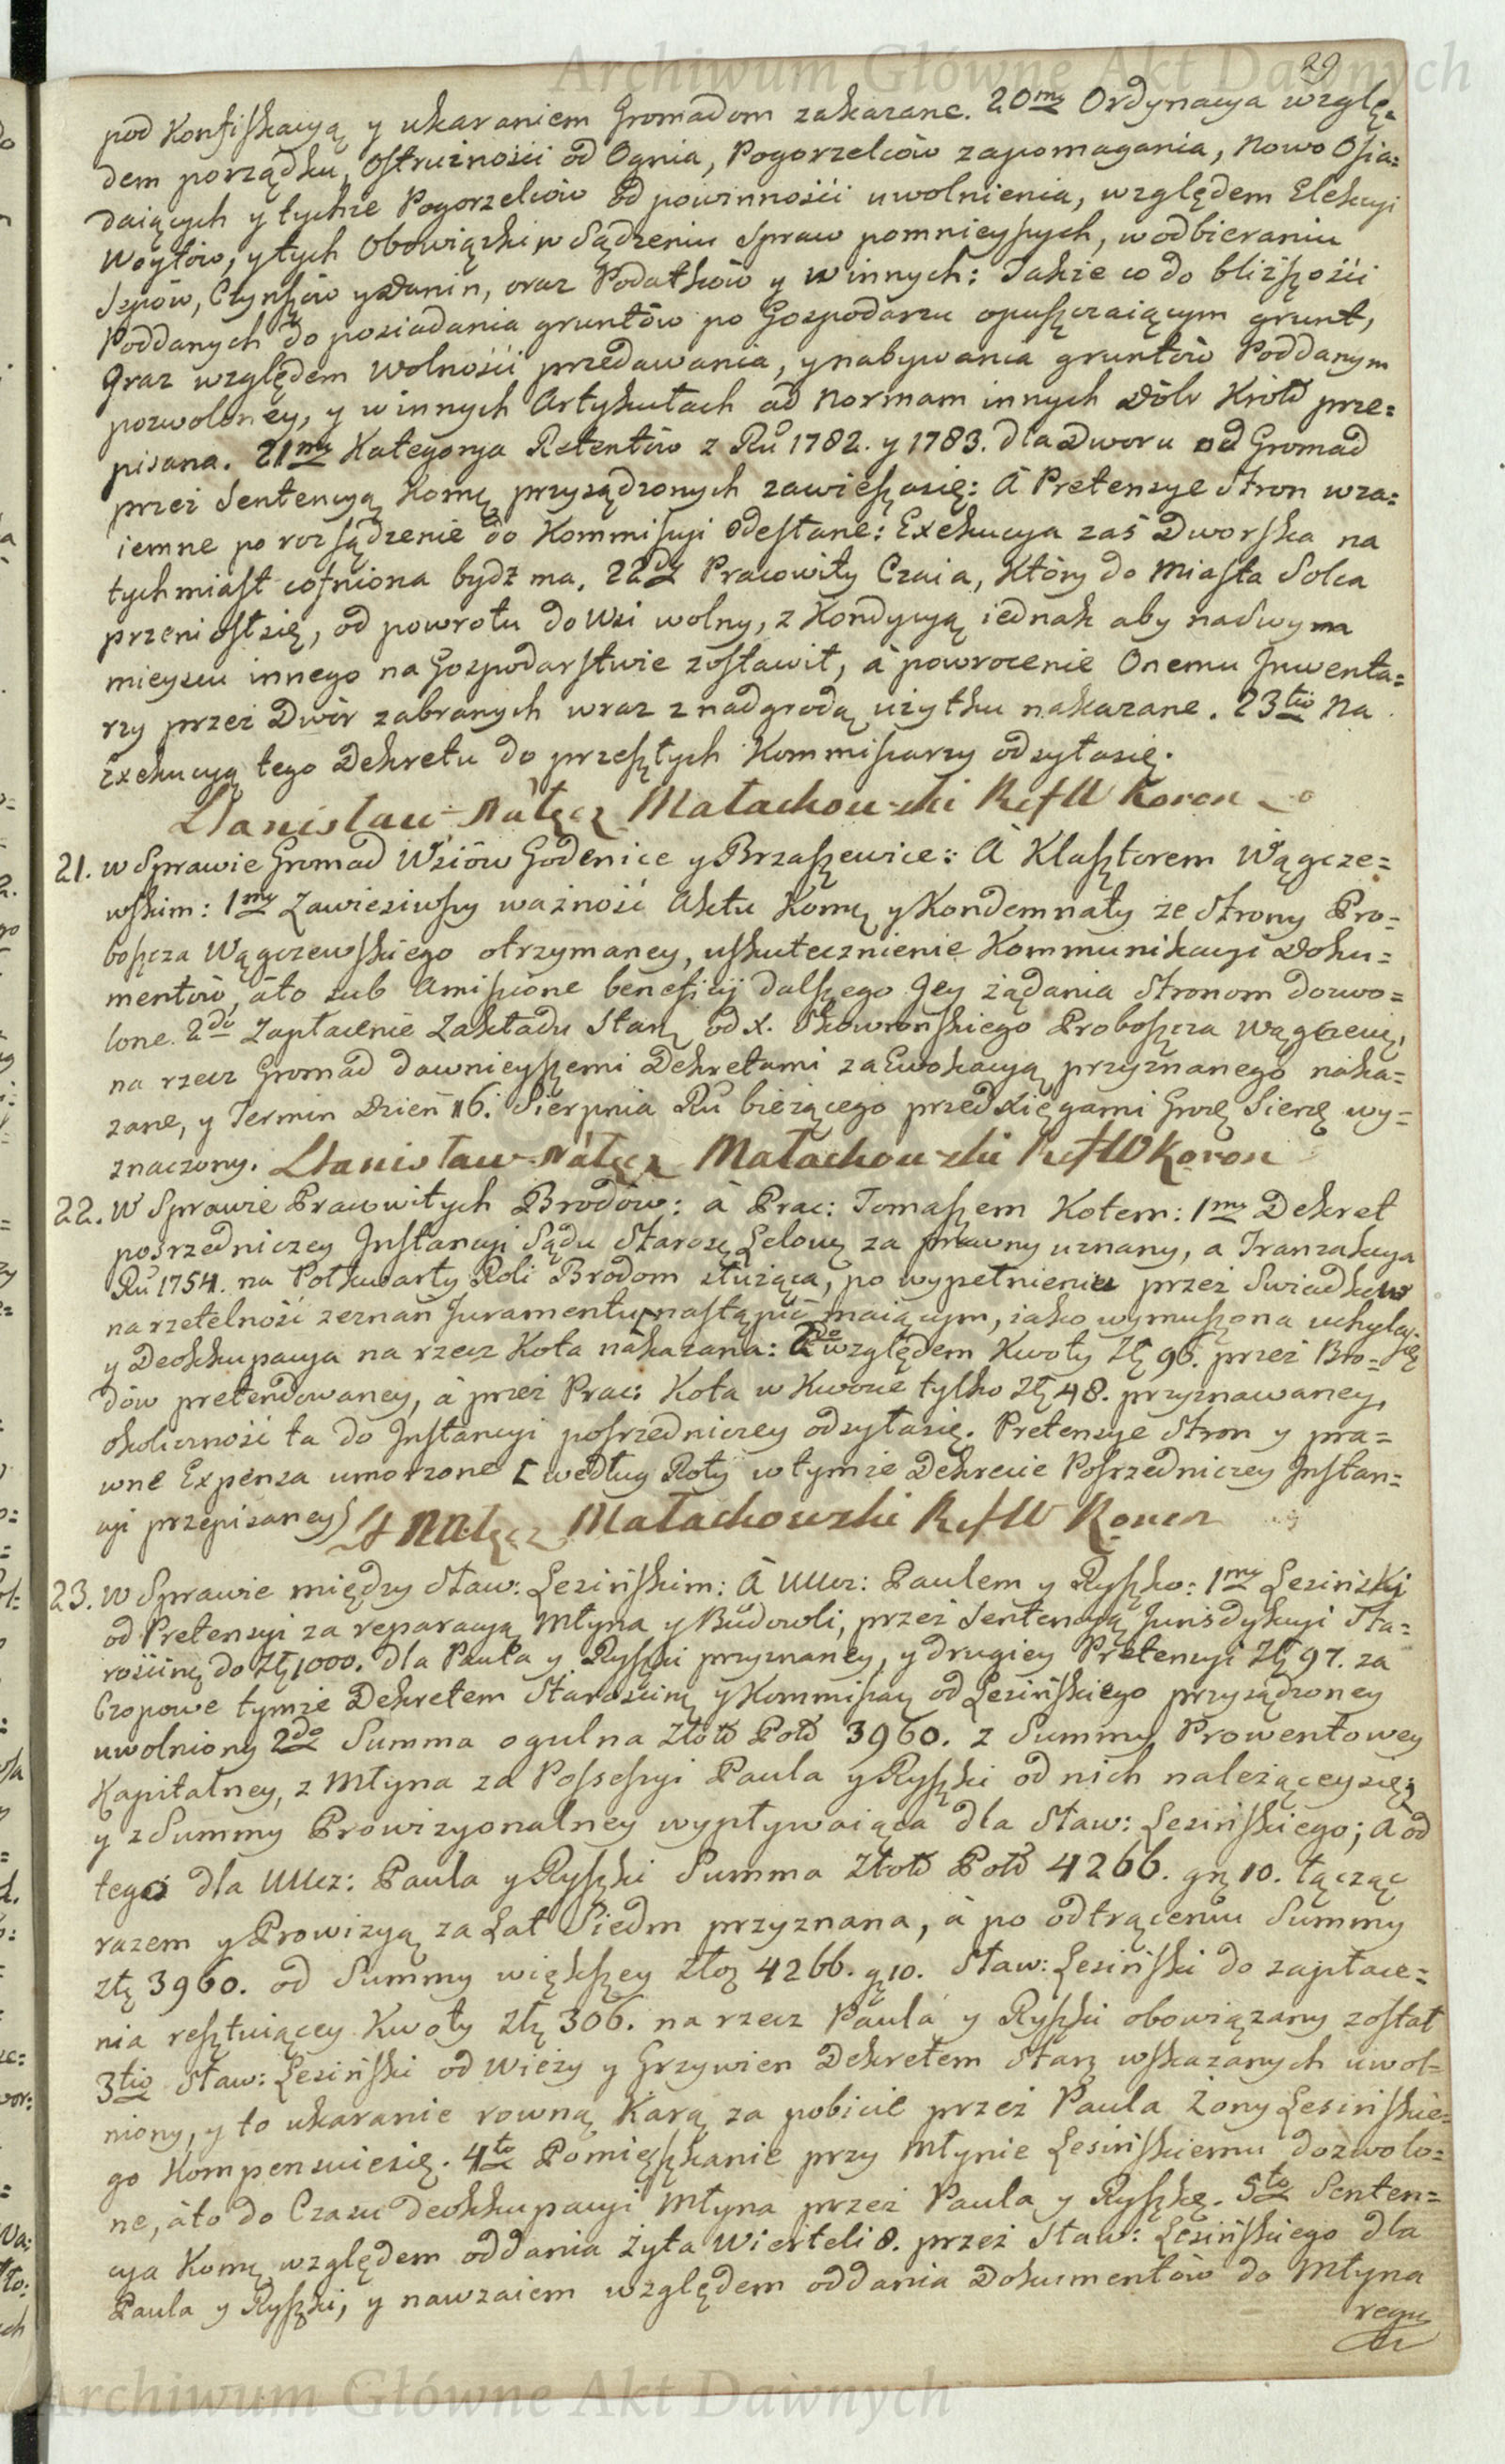 Archiwum Główne Akt Dawnych
29
pod Konfiskacyą y ukaraniem Gromadom zakazane. 20mo Ordynacya wzglę=
dem porządku, Ostrużności od Ognia, Pogorzelców zapomagania, Nowo Osia=
daiących y tychże Pogorzelców od powinności uwolnienia, względem Elekcyi
Woytów, y tych Obowiązki w Sądzeniu Spraw pomnieyszych, w odbieraniu
Sepów, Czynszów y Danin, oraz Podatków y w innych: Także co do bliższości
Poddanych do posiadania gruntów po Gospodarzu opuszczaiącym grunt,
Oraz względem Wolności przedawania, y nabywania gruntów Poddanym
pozwoloney, y w innych Artykułach ad Normam innych Dóbr Król prze=
pisana. 21mo Kategorya Retentów z Ru 1782. y 1783. dla Dworu od Gromad
przez Sentencyą Komę przysądzonych zawiesza się: A Pretensye Stron wza=
iemne po rozsądzenie do Kommissyi Odesłane: Exekucya zaś Dworska na
tychmiast cofniona bydź ma. 22do Pracowity Czaia, Który do Miasta Solca
przeniosł się, od powrotu do Wsi wolny, z Kondycyą iednak aby na swym
mieyscu innego na Gospodarstwie zostawił, à powrocenie Onemu Inwenta=
rzy przez Dwór zabranych wraz z nadgrodą użytku nakazane. 23tio Na
Exekucyą tego Dekretu do przeszłych Kommissarzy odsyła się.
Stanisław Nałęcz Małachowski RefW Koron
21. w Sprawie Gromad Wsiów Godenice y Brzaszewice: A Klasztorem Wągcze=
wskim: 1mo Zawiesiwszy ważność Aktu Komę y Kondemnaty ze Strony Pro=
boszcza Wągczewskiego otrzymaney, uskutecznienie Kommunikacyi Doku=
mentów, àto sub Amissione beneficij dalszego Jey żądania Stronom dozwo=
lone. 2do Zapłacenie Zakładu Starę od X. Skowrońskiego Proboszcza Wągczewę,
na rzecz Gromad dawnieyszemi Dekretami za Ewokacyą przyznanego naka=
zane, y Termin Dzień 16. Sierpnia Ru bieżącego przed Xięgami Grozę Sierę wy=
znaczony. Stanisław Nałęcz Małachowski RefW Koron
22. W Sprawie Pracowitych Brodów: à Prac: Tomaszem Kotem: 1mo Dekret
pośredniczey Instancyi Sądu Starosę Lelowę za prawny uznany, a Tranzakcya
Ru 1754. na Połkwarty Roli Brodom służąca, po wypełnieniu przez Swiadków
na rzetelność zeznań Juramentu nastąpić maiącym, iako wymuszona uchyla się
y Deokkupacya na rzecz Kota nakazana: 2do względem Kwoty Złę 96. przez Bro=
dów pretendowaney, à przez Prac: Kota w Kwocie tylko Złę 48. przyznawaney,
okoliczność ta do Instancyi pośredniczey odsyła się. Pretensye Stron y pra=
wne Expensa umorzone [według Roty w tymże Dekrecie Pośredniczey Instan=
cyi przepisaney) St Nałęcz Małachowski RefW Koron
23. W Sprawie między Sław: Lesińskim: A UUcz: Paulem y Ryszko: 1mo Lesiński
od Pretensyi za reparacyą Młyna y Budowli, przez Sentencyą Jurisdykcyi Sta=
rościnę do Złę 1000. dla Paula y Ryszki przyznaney, y drugiey Pretensyi Złę 97. za
Czopowe tymże Dekretem Starościnę y Kommissaę od Lesińskiego przysądzoney
uwolniony 2do Summa ogulna Złoto Pold 3960. z Summy Prowentowey
Kapitalney, z Młyna za Possessyi Paula y Ryszki od nich należącey się;
y z Summy Prowizyonalney wypływaiąca dla Sław: Lesińskiego; A od
tego dla UUcz: Paula y Ryszki Summa Złoto Pold 4266. grę 10. łącząc
razem y Prowizyą za Lat Siedm przyznana, à po odtrąceniu Summy
Złę 3960. od Summy większey Złoę 4266. g 10. Sław: Lesiński do zapłace=
nia resztuiącey Kwoty Złę 306. na rzecz Paula y Ryszki obowiązany został
3tio Sław: Lesiński od Wieży y Grzywien Dekretem Starę wskazanych uwol=
niony, y to ukaranie rowną Karą za pobicie przez Paula Żony Lesińskie=
go Kompensuie się. 4to Pomieszkanie przy Młynie Lesińskiemu dozwolo=
ne, àto do Czasu deokkupacyi Młyna przez Paula y Ryszkę. 5to Senten=
cya Komę względem oddania żyta Wierteli 8. przez Sław: Lesińskiego dla
Paula y Ryszki, y nawzaiem względem oddania Dokumentów do Młyna
Archiwum Główne Akt Dawnych